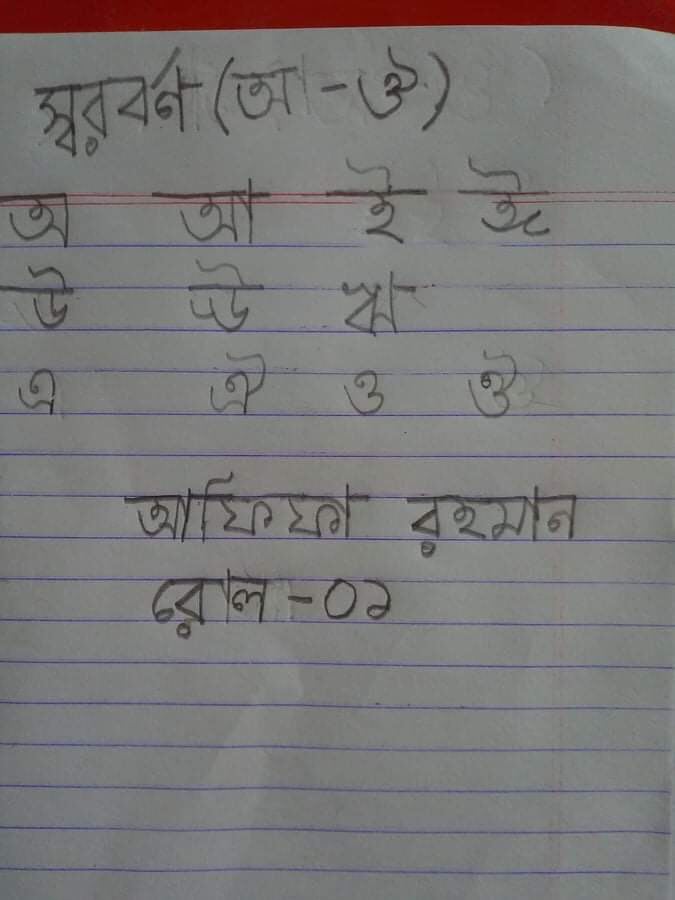 স্বরবর্ণ (অ - ঔ)
অ আ ই ঈ
উ ঊ ঋ
এ ঐ ও ঔ
আফিফা রহমান
রোল - ০১